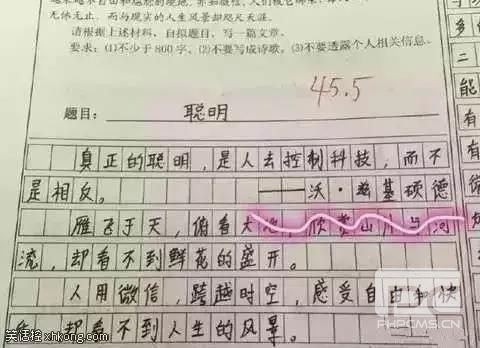 无休无止。而与现实的人生风景却咫尺天涯。
请根据上述材料，自拟题目，写一篇文章。
要求：(1)不少于800字，(2)不要写成诗歌。(3)不要透露个人相关信息。
45.5
题目：聪明
真正的聪明，是人去控制科技，而不
是相反。 ——沃·兹基硕德
雁飞于天，俯看大地，欣赏山川与河
流，却看不到鲜花的盛开。
人用微信，跨越时空，感受自由和快
却看不到人生的风景。
多
二
能
有
有
笑话控xhkong.com
PHPCMS.CN